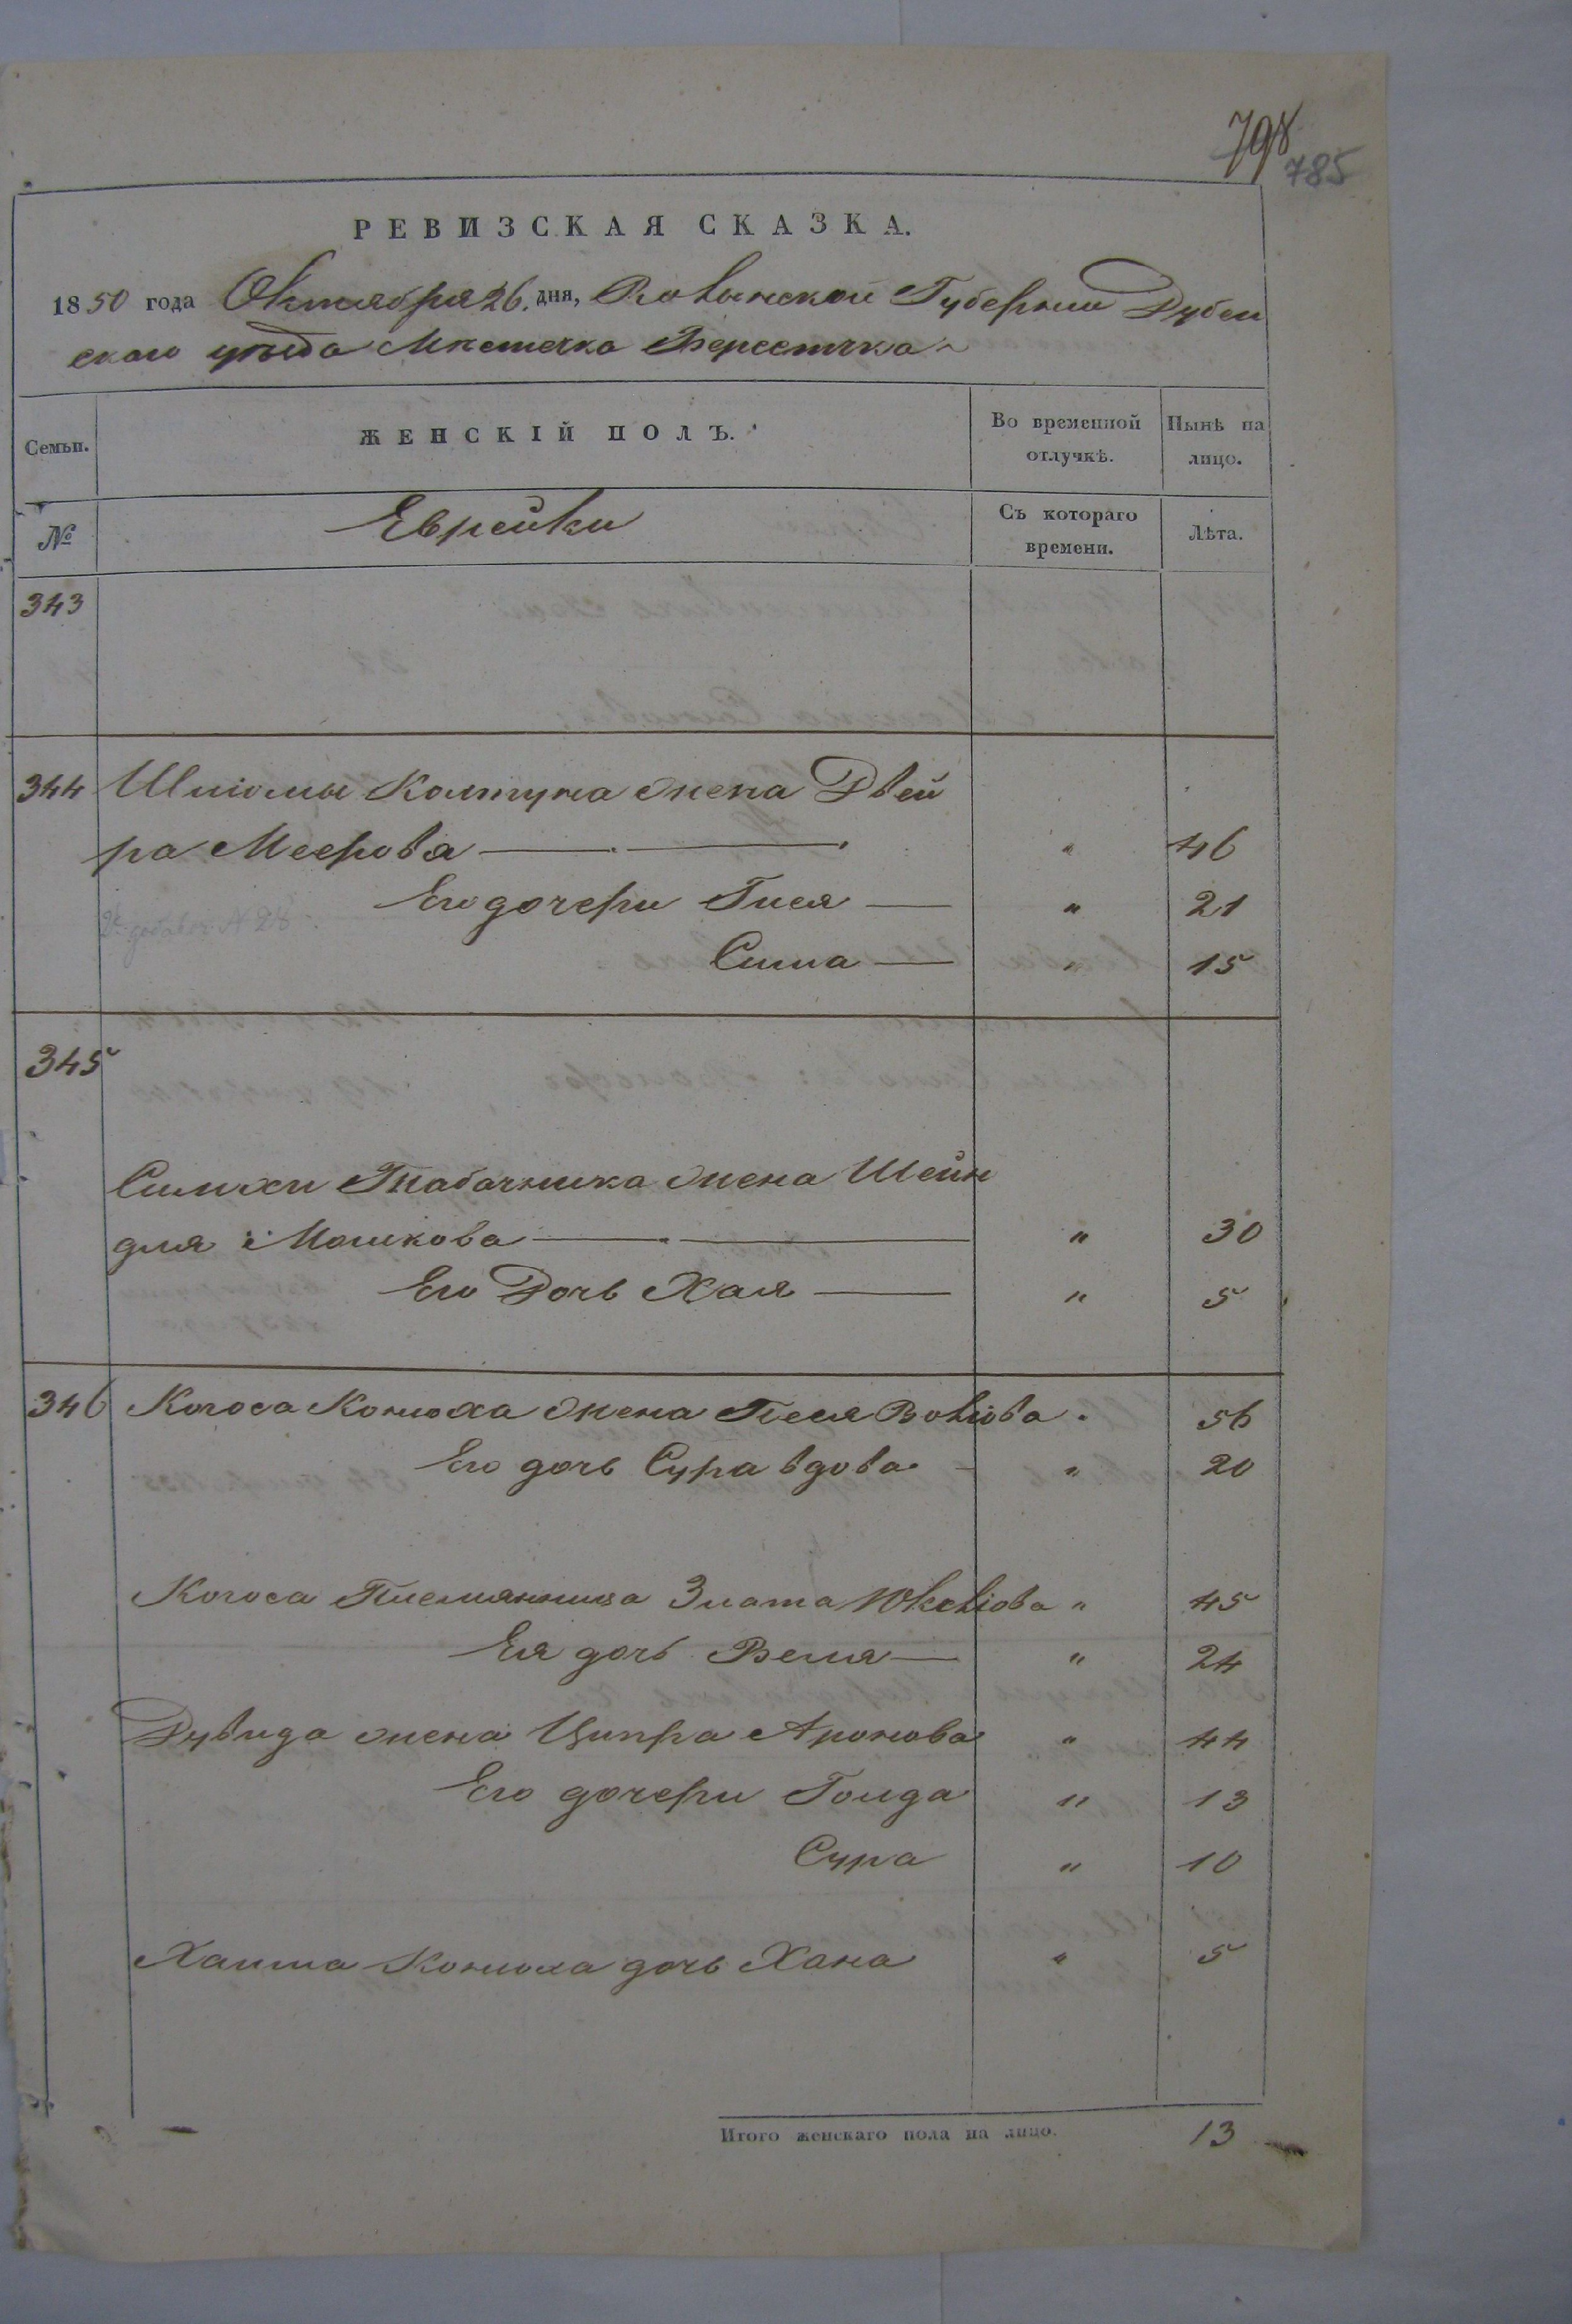 798
785
РЕВИЗСКАЯ СКАЗКА.
1850 года Октября 26. дня, Волынской Губернии Дубен
скаго уѣзда Мѣстечка Берестечка
Семьи.
ЖЕНСКІЙ ПОЛЪ.
Во временной отлучкѣ.
Нынѣ на лицо.
№
Еврейки
Съ котораго времени.
Лѣта.
343
344 Шліомы Колтуна жена Двей
ра Меерова — — " 46
Его дочери Гися — " 21
добавоч. № 28
Сима — " 15
345
Симхи Табачника жена Шейн
для Мошкова — — " 30
Его Дочь Хая — " 5
346 Когоса Конюха жена Песя Волiова " 56
Его дочь Сура вдова - " 20
Когоса Племянница Злата Юкелiова " 45
Ея дочь Беля — " 24
Дувида жена Ципра Аронова " 44
Его дочери Голда " 13
Сура " 10
Хаима Конюха дочь Хана " 5
Итого женскаго пола на лицо. 13